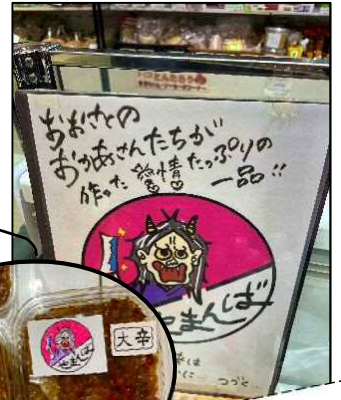 おおさとの
おかあさんたちが
作った愛情たっぷりの
一品!!
やまんば
大辛